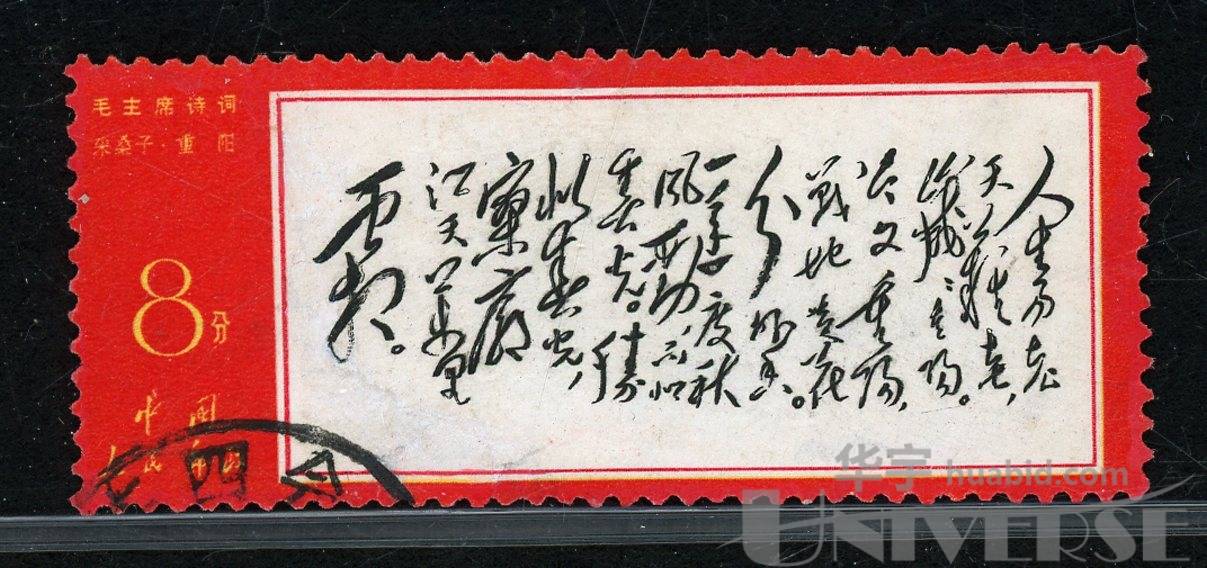 毛主席诗词
采桑子·重阳
8分
中国
人民邮政
人生易老
天難老,
歲〻重陽。
今又重陽,
戰地黄花
分外香。
一年一度秋
風勁,不似
春光。勝
似春光,
寥廓
江天萬里
霜。
四
华宇 huabid.com
UNIVERSE